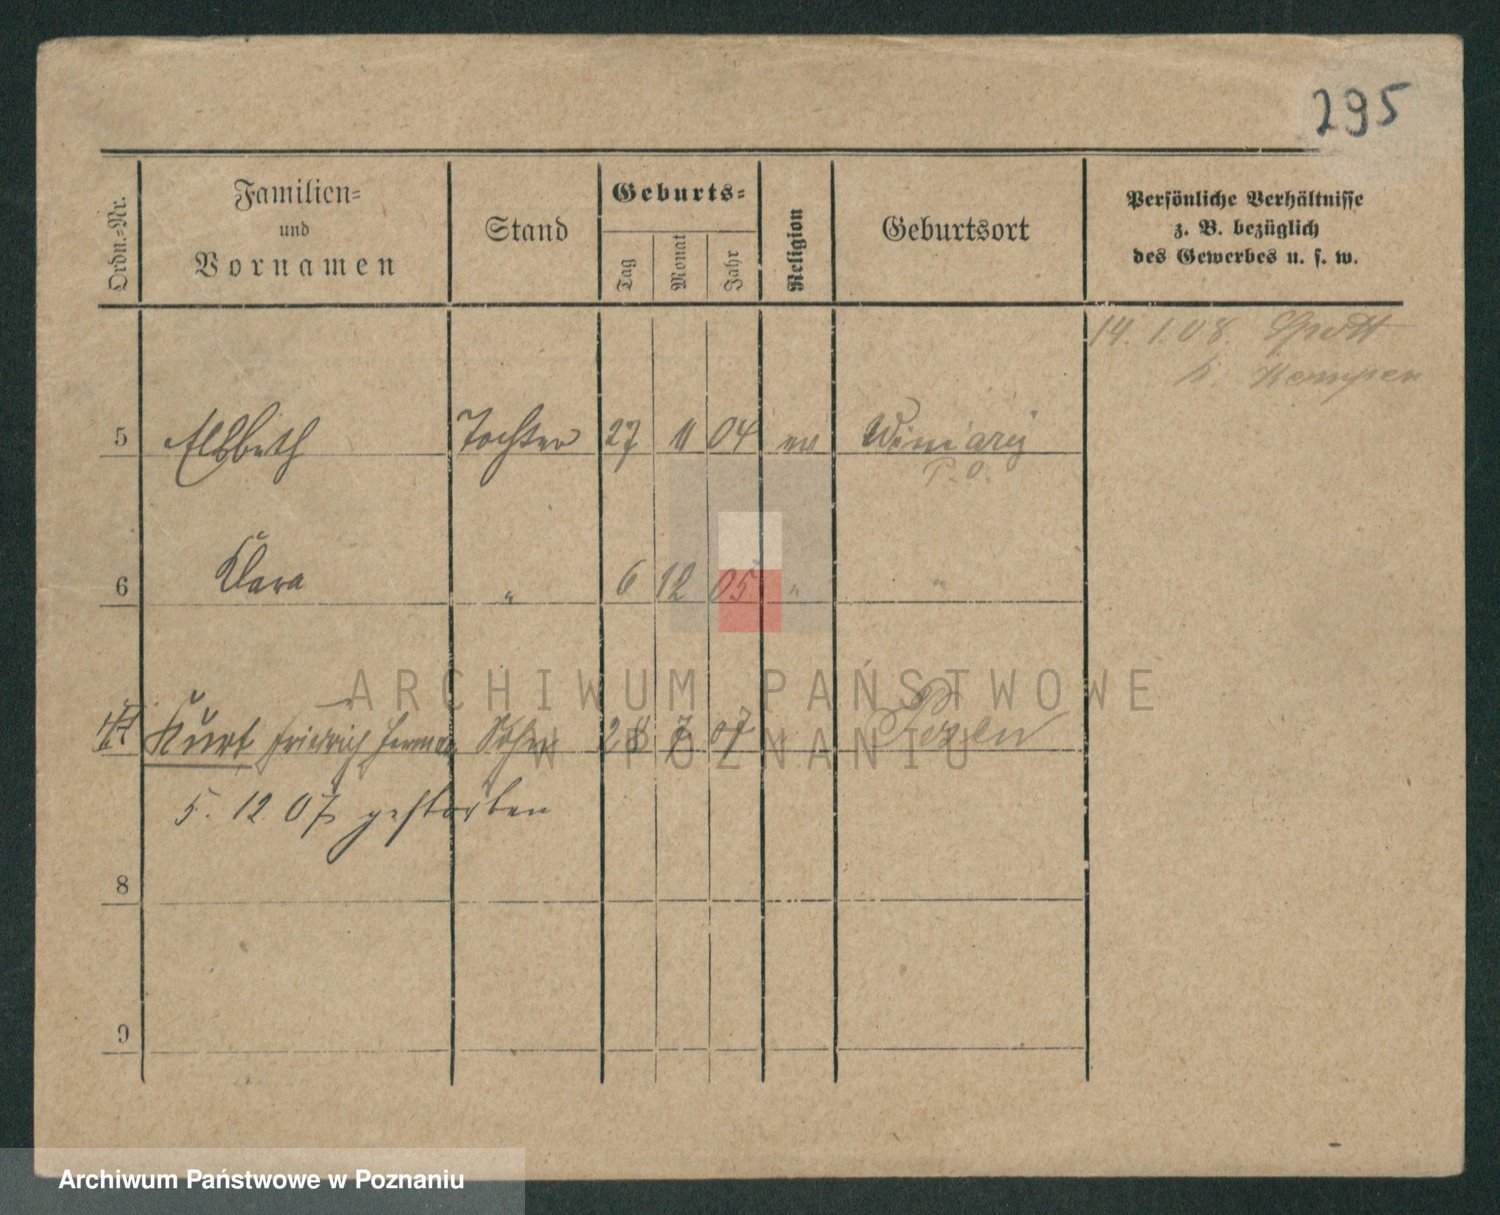 295
Ordn.=Nr.
Familien=
und
Vornamen
Stand
Geburts=
Tag
Monat
Jahr
Religion
Geburtsort
Persönliche Verhältnisse
z. B. bezüglich
des Gewerbes u. s. w.
14. 1. 08.
k. Kempen
5 Elsbeth Tochter 27 11 04 ev Winiary
P. O.
6 Clara " 6 12 05 " "
Kurt Friedrich Herman Sohn 28 7 07 Posen
5. 12. 07 gestorben
8
9
ARCHIWUM PAŃSTWOWE
W POZNANIU
Archiwum Państwowe w Poznaniu